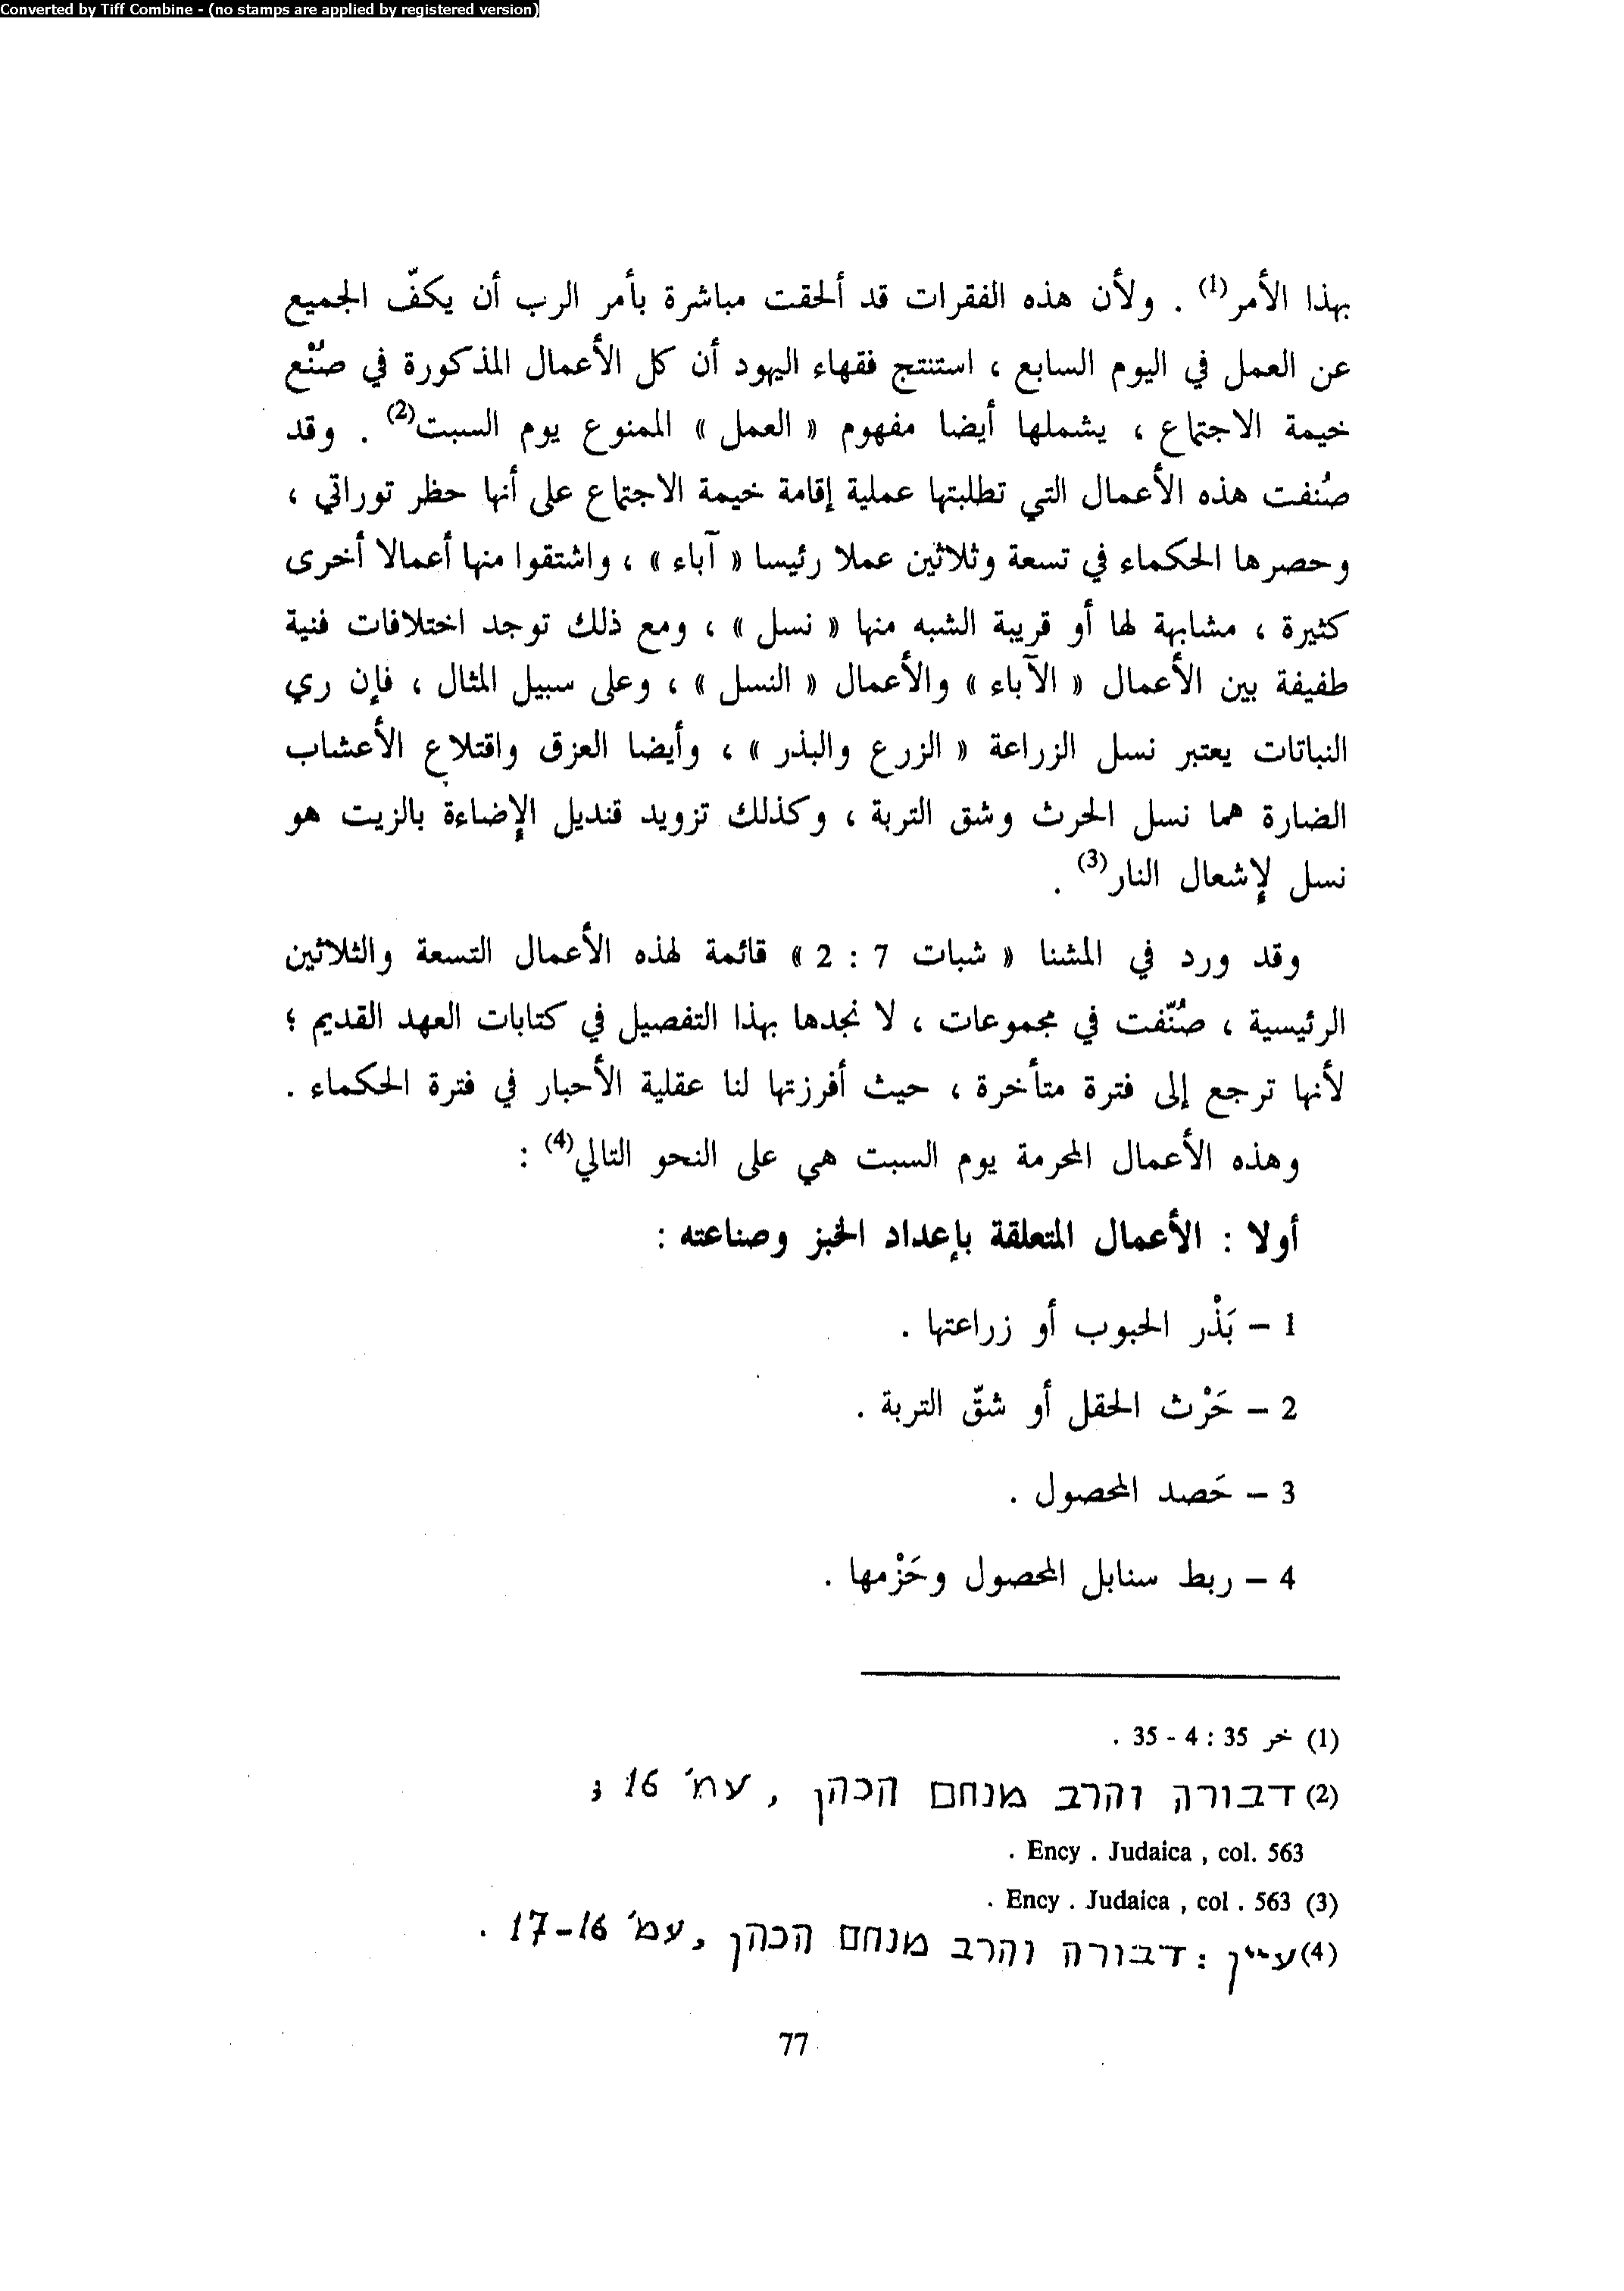 Converted by Tiff Combine - (no stamps are applied by registered version)
بهذا الأمر(1) . ولأن هذه الفقرات قد ألحقت مباشرة بأمر الرب أن يكفّ الجميع
عن العمل في اليوم السابع ، استنتج فقهاء اليهود أن كل الأعمال المذكورة في صُنْع
خيمة الاجتماع ، يشملها أيضا مفهوم « العمل » الممنوع يوم السبت(2) . وقد
صُنفت هذه الأعمال التي تطلبتها عملية إقامة خيمة الاجتماع على أنها حظر توراتي ،
وحصرها الحكماء في تسعة وثلاثين عملا رئيسا « آباء » ، واشتقوا منها أعمالا أخرى
كثيرة ، مشابهة لها أو قريبة الشبه منها « نسل » ، ومع ذلك توجد اختلافات فنية
طفيفة بين الأعمال « الآباء » والأعمال « النسل » ، وعلى سبيل المثال ، فإن ري
النباتات يعتبر نسل الزراعة « الزرع والبذر » ، وأيضا العزق واقتلاع الأعشاب
الضارة هما نسل الحرث وشق التربة ، وكذلك تزويد قنديل الإضاءة بالزيت هو
نسل لإشعال النار(3) .
وقد ورد في المشنا « شبات 7 : 2 » قائمة لهذه الأعمال التسعة والثلاثين
الرئيسية ، صُنّفت في مجموعات ، لا نجدها بهذا التفصيل في كتابات العهد القديم ؛
لأنها ترجع إلى فترة متأخرة ، حيث أفرزتها لنا عقلية الأحبار في فترة الحكماء .
وهذه الأعمال المحرمة يوم السبت هي على النحو التالي(4) :
أولا : الأعمال المتعلقة بإعداد الخبز وصناعته :
1 – بَذْر الحبوب أو زراعتها .
2 – حَرْث الحقل أو شقّ التربة .
3 – حَصد المحصول .
4 – ربط سنابل المحصول وحَزْمها .
(1) خر 35 : 4 - 35 .
(2) דבורה והרב מנחם הכהן , עמ' 16 ;
Ency . Judaica , col. 563 .
(3) Ency . Judaica , col . 563 .
(4) עיין : דבורה והרב מנחם הכהן , עמ' 16-17 .
77